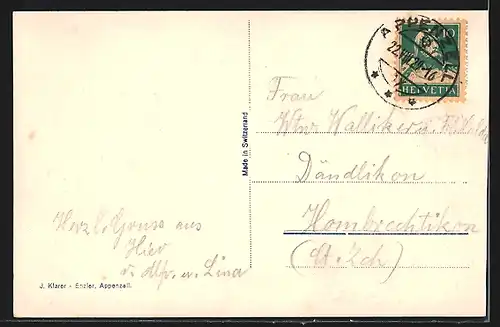 APPENZELL
10
HELVETIA
Made in Switzerland
Frau
Wtw. Wallikern
Dändlikon
Hombrechtikon
(Kt. Zch)
Herzl. Gruss aus
Hier
v. Alfr. u. Lina
J. Klarer - Enzler, Appenzell.